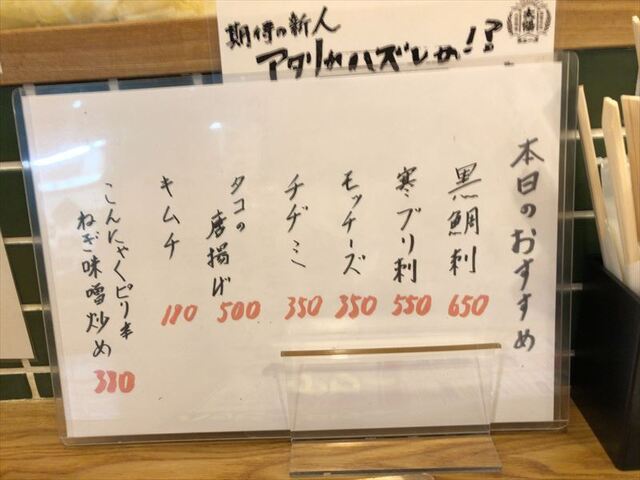 期待の新人
アタリかハズレか!?
本日のおすすめ
黒鯛刺 650
寒ブリ刺 550
モッチーズ 350
チヂミ 350
タコの唐揚げ 500
キムチ 180
こんにゃくピリ辛
ねぎ味噌炒め 330